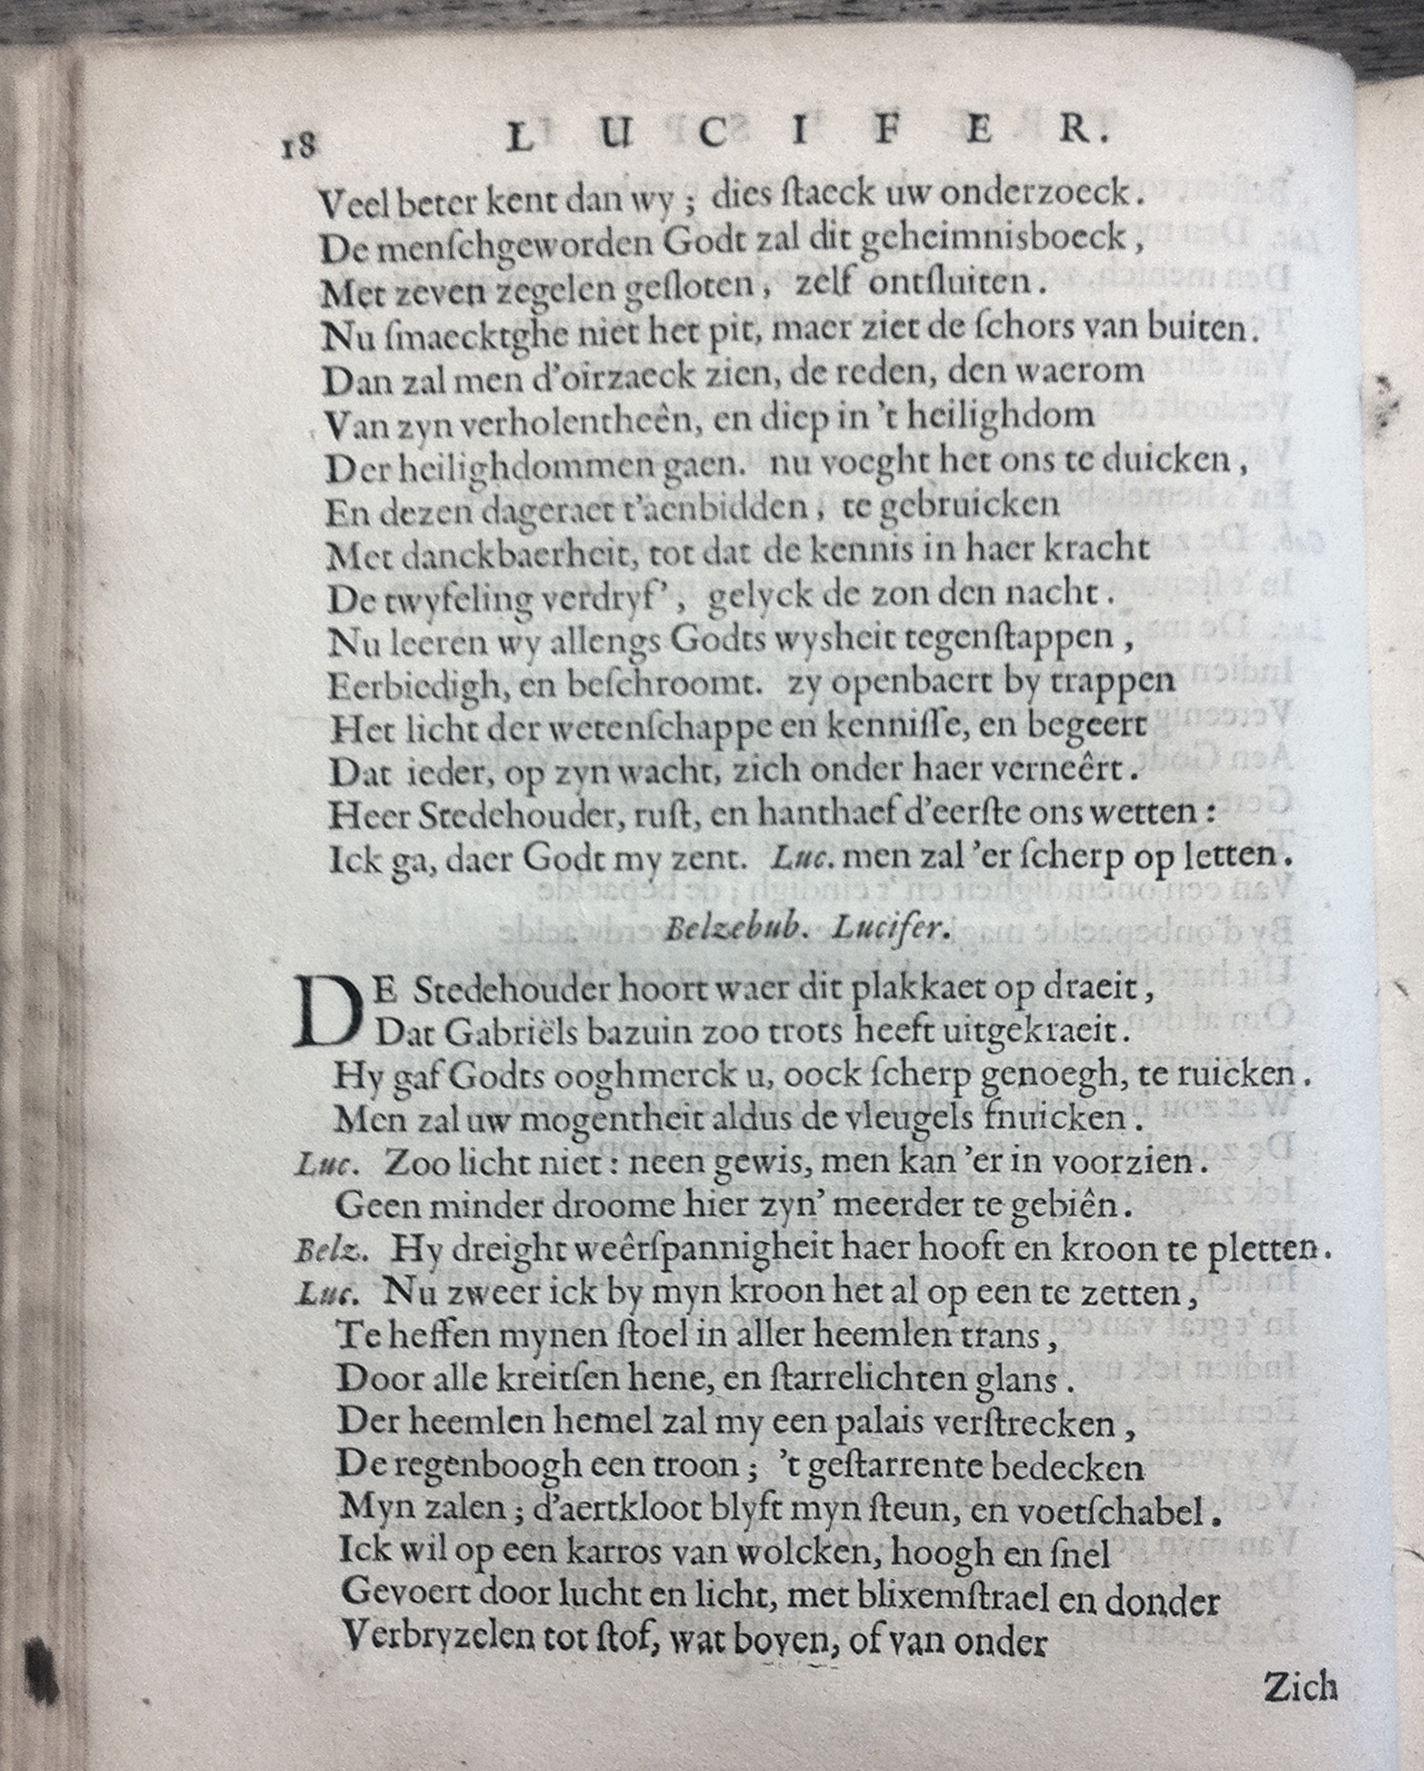 18 LUCIFER.
Veel beter kent dan wy; dies ſtaeck uw onderzoeck.
De menſchgeworden Godt zal dit geheimnisboeck,
Met zeven zegelen geſloten, zelf ontſluiten.
Nu ſmaecktghe niet het pit, maer ziet de ſchors van buiten.
Dan zal men d'oirzaeck zien, de reden, den waerom
Van zyn verholentheên, en diep in 't heilighdom
Der heilighdommen gaen. nu voeght het ons te duicken,
En dezen dageraet t'aenbidden, te gebruicken
Met danckbaerheit, tot dat de kennis in haer kracht
De twyfeling verdryf', gelyck de zon den nacht.
Nu leeren wy allengs Godts wysheit tegenſtappen,
Eerbiedigh, en beſchroomt. zy openbaert by trappen
Het licht der wetenſchappe en kenniſſe, en begeert
Dat ieder, op zyn wacht, zich onder haer verneêrt.
Heer Stedehouder, ruſt, en hanthaef d'eerſte ons wetten:
Ick ga, daer Godt my zent. Luc. men zal 'er ſcherp op letten.
Belzebub. Lucifer.
DE Stedehouder hoort waer dit plakkaet op draeit,
Dat Gabriëls bazuin zoo trots heeft uitgekraeit.
Hy gaf Godts ooghmerck u, oock ſcherp genoegh, te ruicken.
Men zal uw mogentheit aldus de vleugels fnuicken.
Luc. Zoo licht niet: neen gewis, men kan 'er in voorzien.
Geen minder droome hier zyn' meerder te gebiên.
Belz. Hy dreight weêrſpannigheit haer hooft en kroon te pletten.
Luc. Nu zweer ick by myn kroon het al op een te zetten,
Te heffen mynen ſtoel in aller heemlen trans,
Door alle kreitſen hene, en ſtarrelichten glans.
Der heemlen hemel zal my een palais verſtrecken,
De regenboogh een troon; 't geſtarrente bedecken
Myn zalen; d'aertkloot blyft myn ſteun, en voetſchabel.
Ick wil op een karros van wolcken, hoogh en ſnel
Gevoert door lucht en licht, met blixemſtrael en donder
Verbryzelen tot ſtof, wat boven, of van onder
Zich